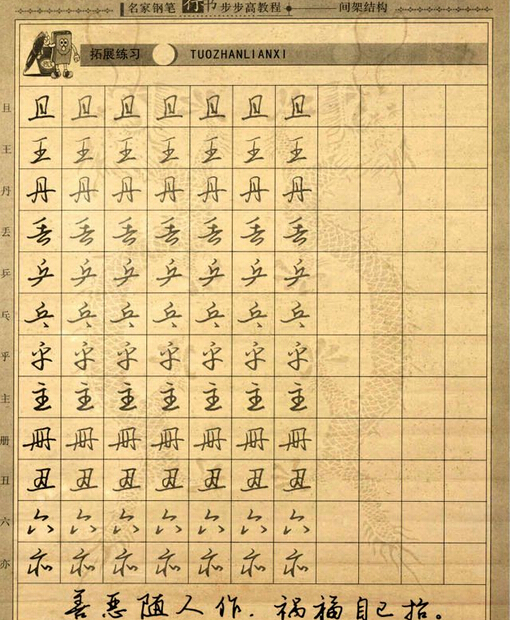 名家钢笔行书步步高教程 间架结构
拓展练习 TUOZHANLIANXI
且 且 且 且 且 且 且 且
王 王 王 王 王 王 王 王
丹 丹 丹 丹 丹 丹 丹 丹
丢 丢 丢 丢 丢 丢 丢 丢
乒 乒 乒 乒 乒 乒 乒 乒
乓 乓 乓 乓 乓 乓 乓 乓
乎 乎 乎 乎 乎 乎 乎 乎
主 主 主 主 主 主 主 主
册 册 册 册 册 册 册 册
丑 丑 丑 丑 丑 丑 丑 丑
六 六 六 六 六 六 六 六
亦 亦 亦 亦 亦 亦 亦 亦
善恶随人作,祸福自己招。